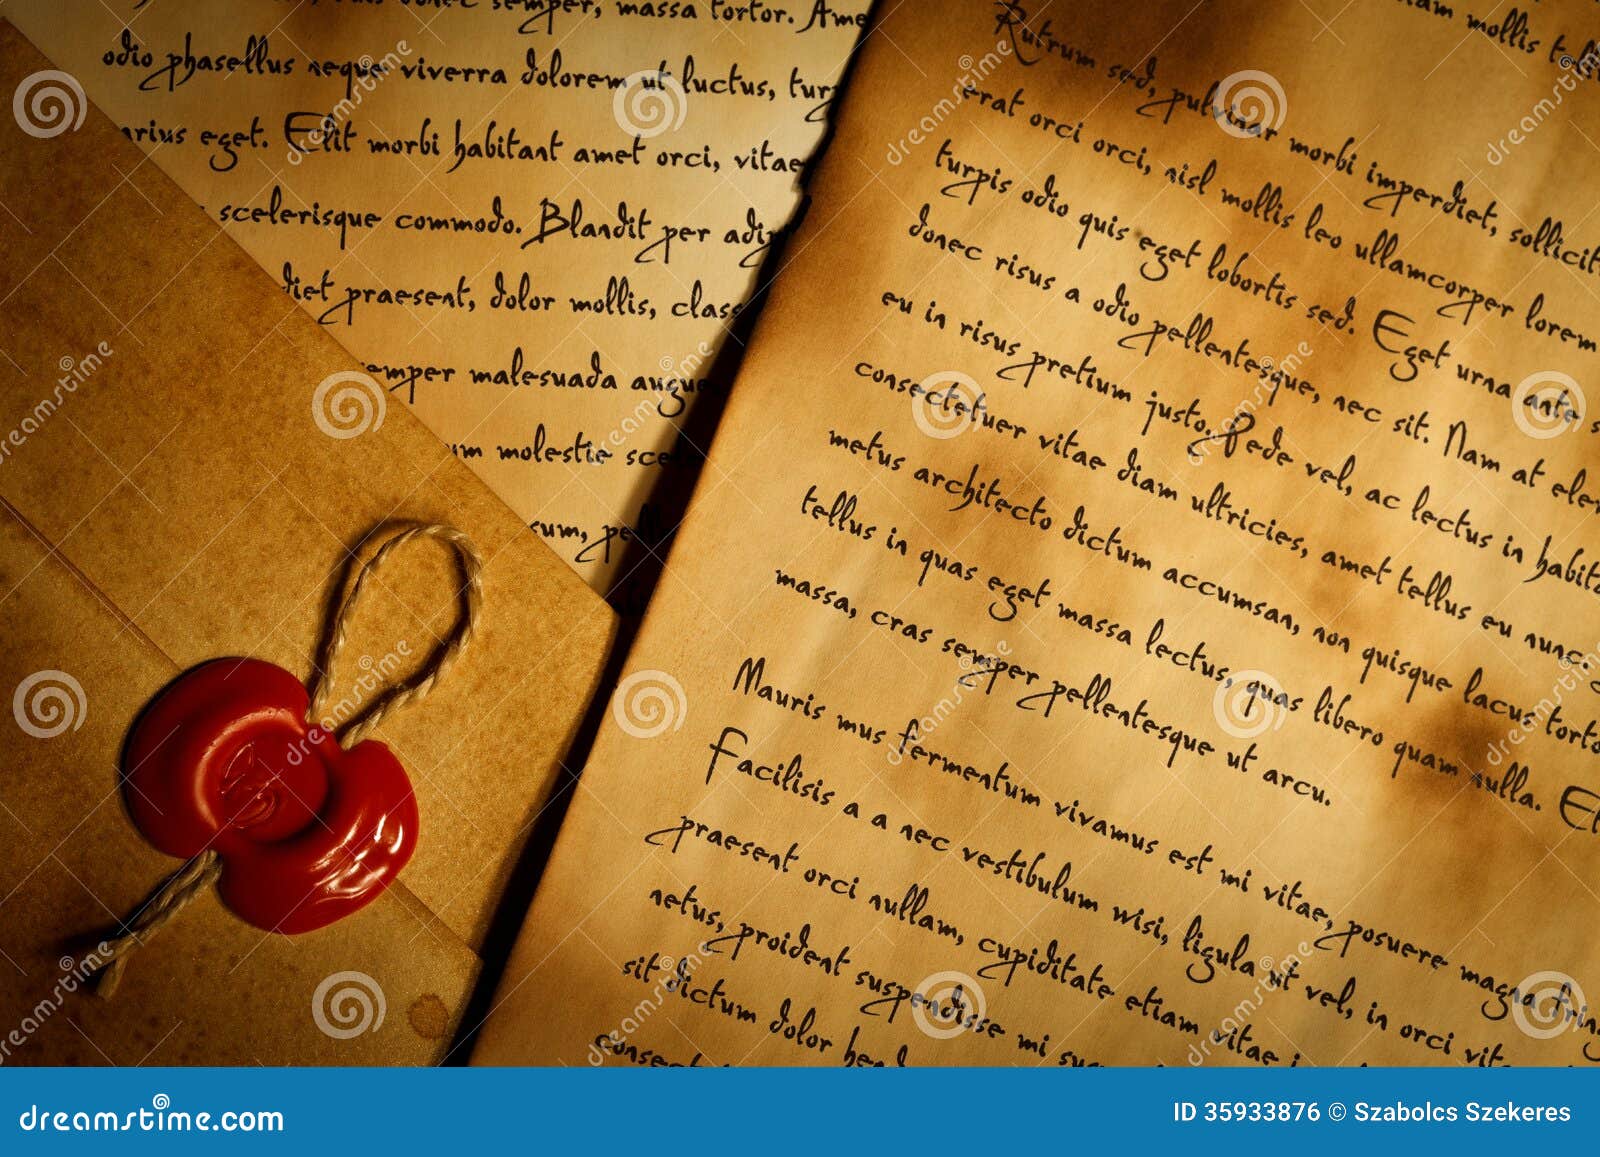 semper, massa tortor.
odio phasellus neque viverra dolorem ut luctus,
eget. Elit morbi habitant amet orci, vitae
scelerisque commodo. Blandit per
praesent, dolor mollis, class
malesuada augue
molestie
mollis
Rutrum sed, pulvinar morbi imperdiet,
erat orci orci, nisl mollis leo ullamcorper lorem
turpis odio quis eget lobortis sed. Eget urna ante
donec risus a odio pellentesque, nec sit. Nam at
eu in risus pretium justo. Pede vel, ac lectus in
consectetuer vitae diam ultricies, amet tellus eu nunc.
metus architecto dictum accumsan, non quisque lacus
tellus in quas eget massa lectus, quas libero quam nulla.
massa, cras semper pellentesque ut arcu.
Mauris mus fermentum vivamus est mi vitae, posuere magna
Facilisis a a nec vestibulum wisi, ligula ut vel, in orci
praesent orci nullam, cupiditate etiam vitae
netus, proident suspendisse mi
sit dictum dolor
dreamstime.com
ID 35933876 © Szabolcs Szekeres